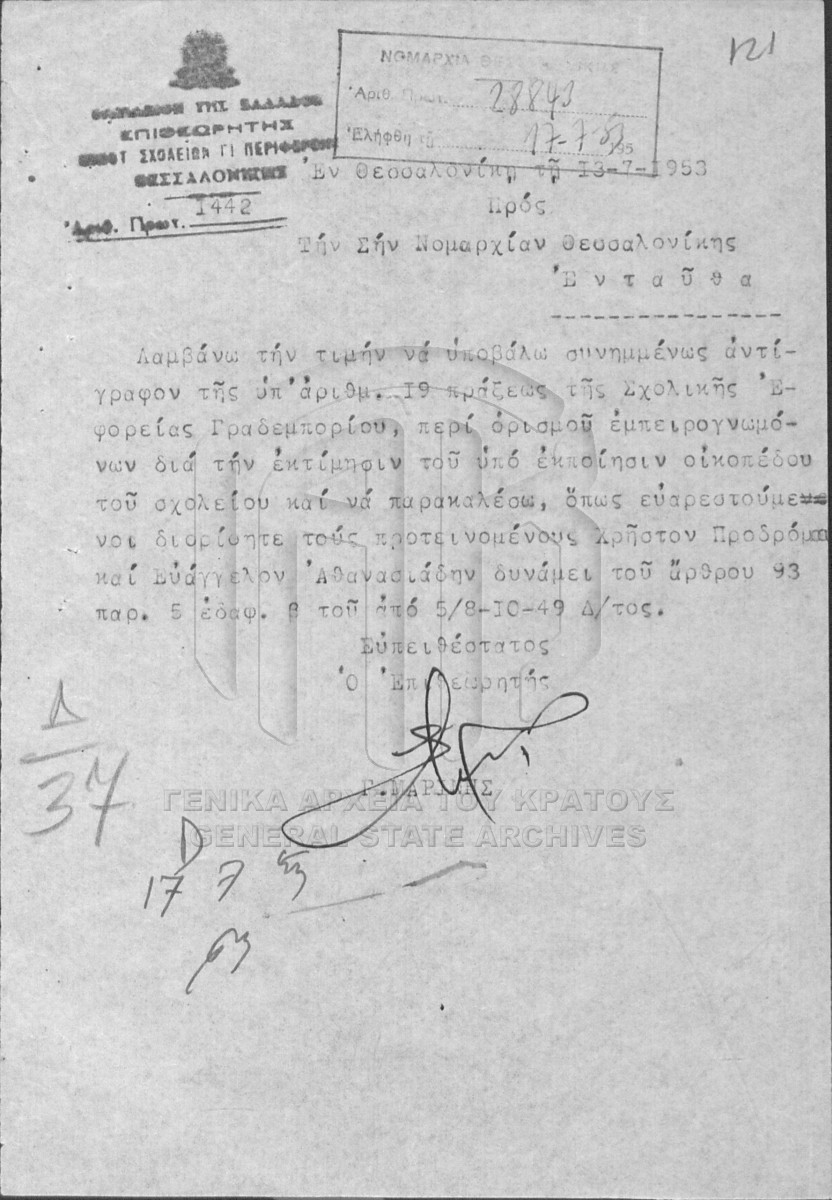 121
ΝΟΜΑΡΧΙΑ ΘΕΣΣΑΛΟΝΙΚΗΣ
Ἀριθ. Πρωτ. 28843
Ἐλήφθη τῇ 17-7-53 195
ΒΑΣΙΛΕΙΟΝ ΤΗΣ ΕΛΛΑΔΟΣ
ΕΠΙΘΕΩΡΗΤΗΣ
ΔΗΜΟΤ ΣΧΟΛΕΙΩΝ Γ΄ ΠΕΡΙΦΕΡΕΙΑΣ
ΘΕΣΣΑΛΟΝΙΚΗΣ
Ἀριθ. Πρωτ. 1442
Ἐν Θεσσαλονίκῃ τῇ I3-7-I953
Πρός
Τήν Σήν Νομαρχίαν Θεσσαλονίκης
Ἐ ν τ α ῦ θ α
Λαμβάνω τήν τιμήν νά ὑποβάλω συνημμένως ἀντί-
γραφον τῆς ὑπ'ἀριθμ. I9 πράξεως τῆς Σχολικῆς Ἐ-
φορείας Γραδεμπορίου, περί ὁρισμοῦ ἐμπειρογνωμό-
νων διά τήν ἐκτίμησιν τοῦ ὑπό ἐκποίησιν οἰκοπέδου
τοῦ σχολείου καί νά παρακαλέσω, ὅπως εὐαρεστούμε
νοι διορίσητε τούς προτεινομένους Χρῆστον Προδρόμου
καί Εὐάγγελον Ἀθανασιάδην δυνάμει τοῦ ἄρθρου 93
παρ. 5 ἐδαφ. β τοῦ ἀπό 5/8-IO-49 Δ/τος.
Εὐπειθέστατος
Ὁ Ἐπιθεωρητής
Γ.ΜΑΡΙΝΗΣ
Δ
37
ΓΕΝΙΚΑ ΑΡΧΕΙΑ ΤΟΥ ΚΡΑΤΟΥΣ
GENERAL STATE ARCHIVES
17 7 53